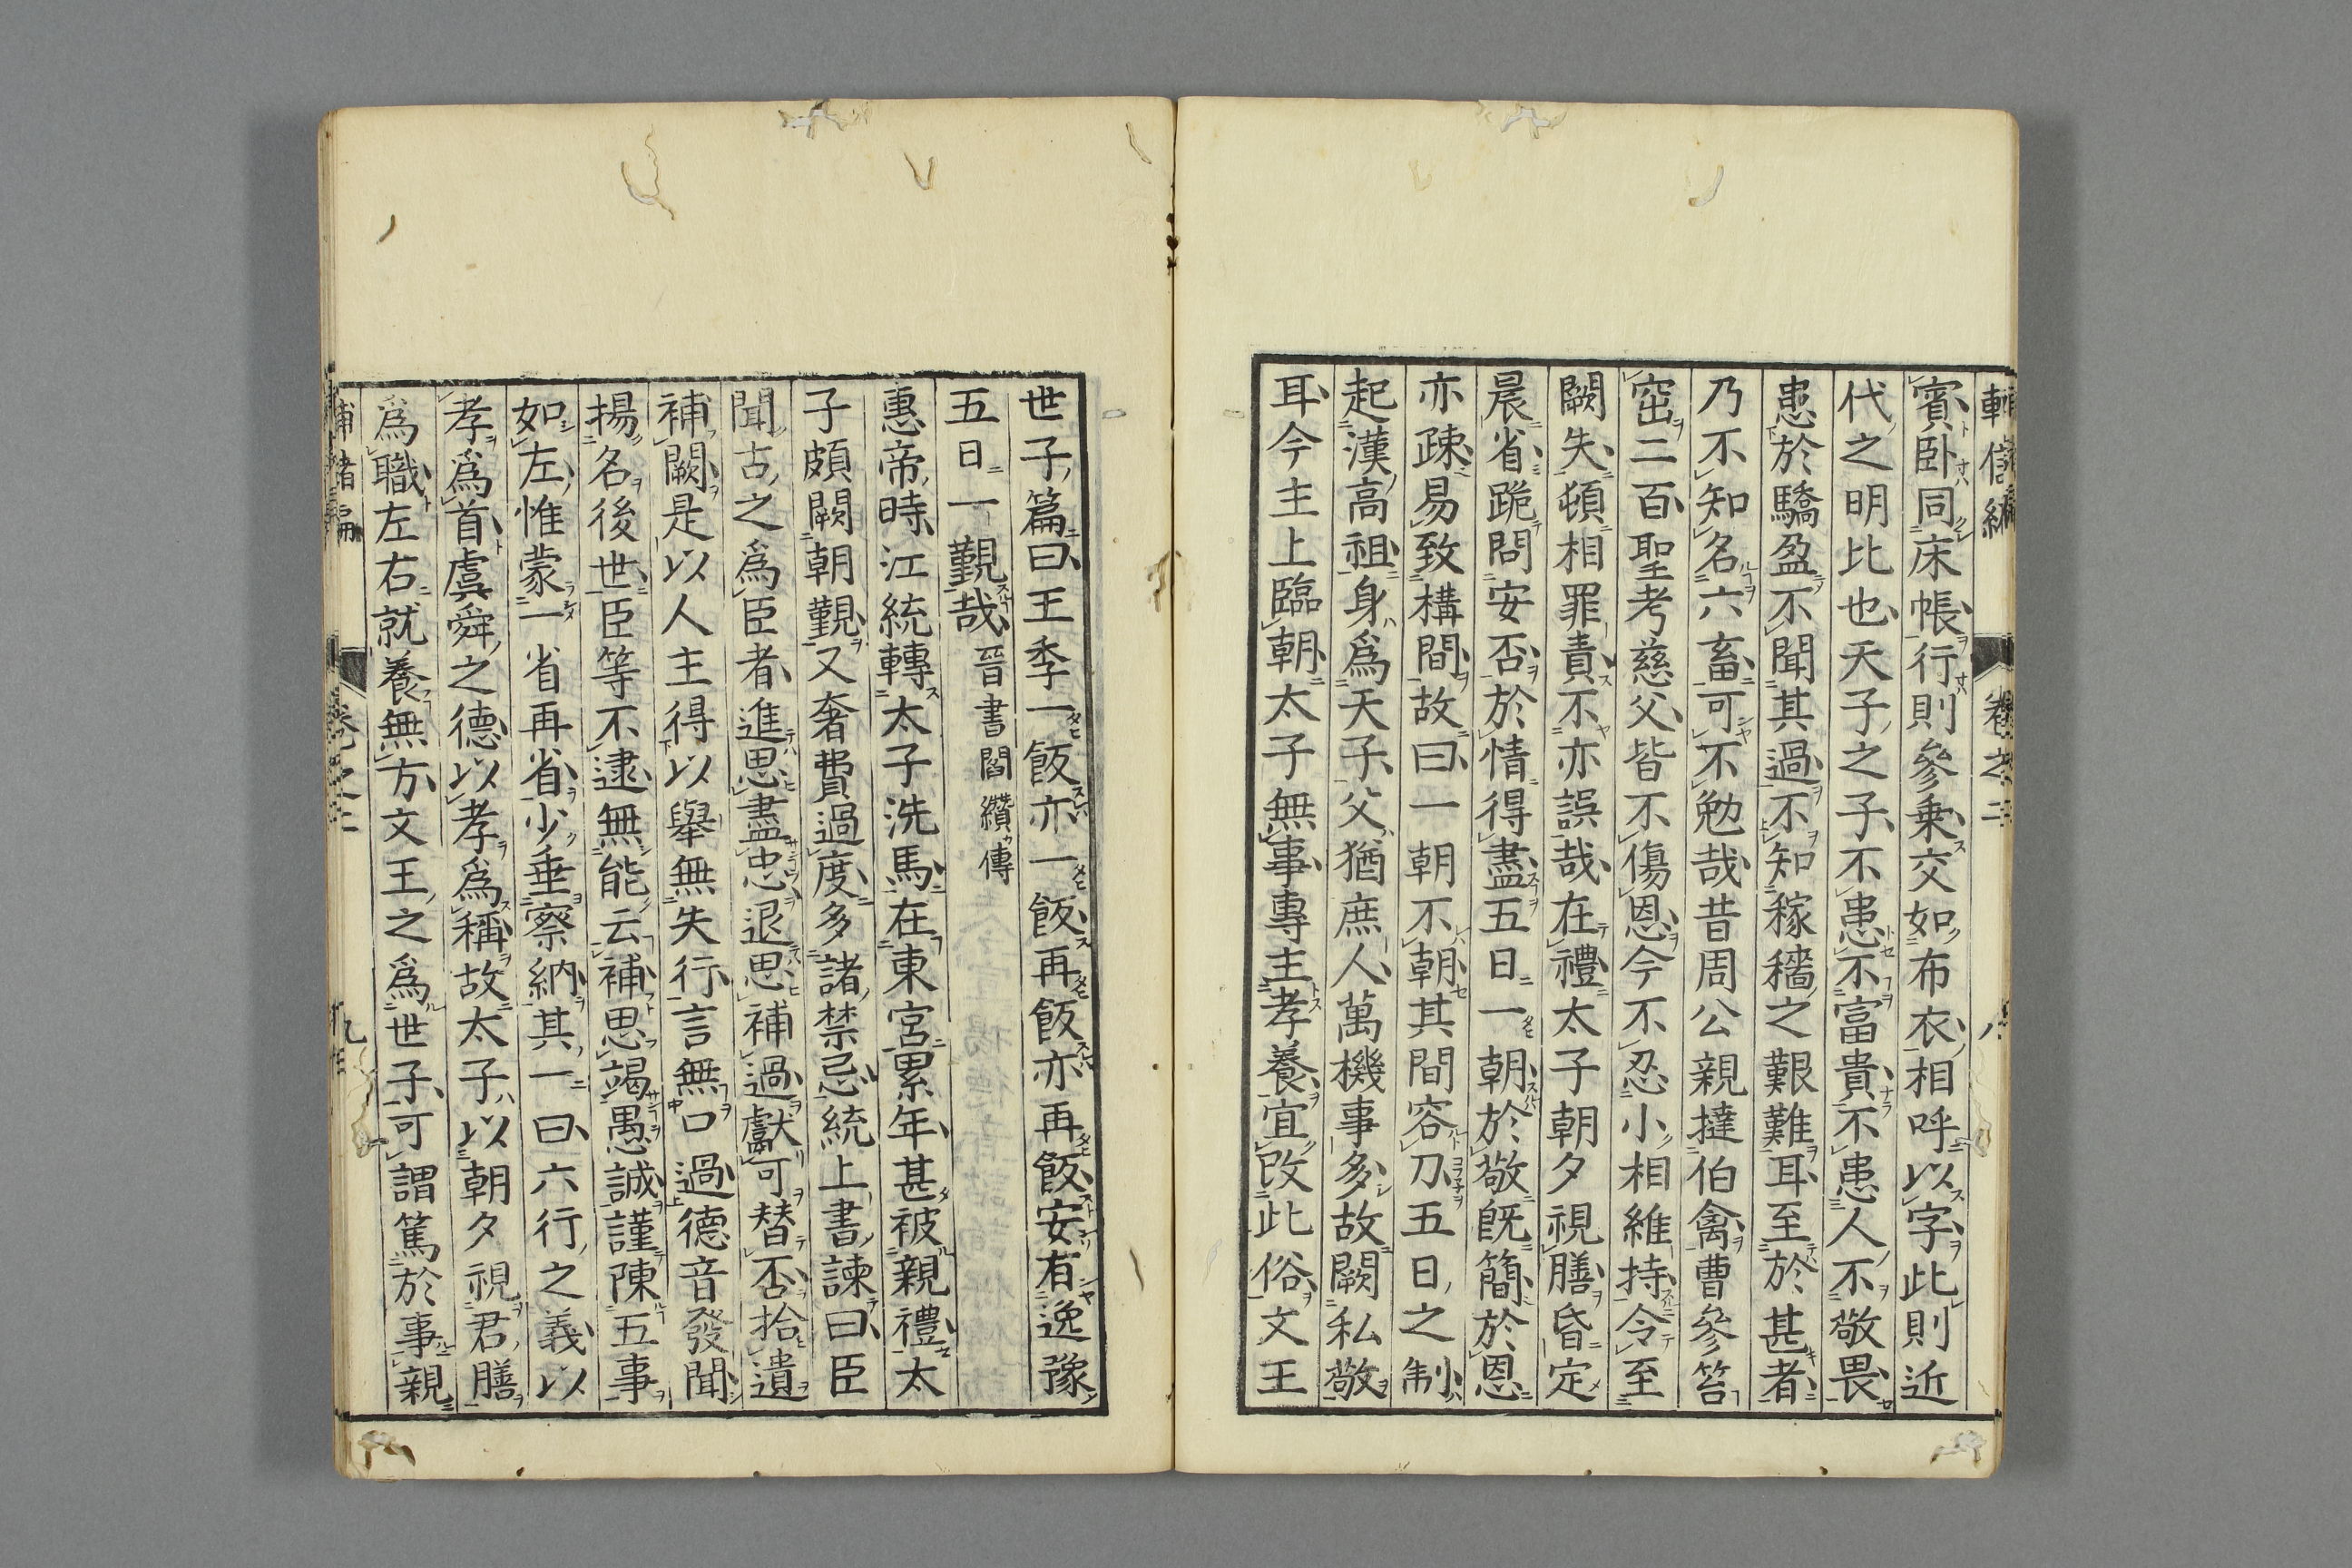 賓卧同床帳行則參乗交如布衣相呼以字此則近
代之明比也天子之子不患不富貴不患人不敬畏
患於驕盈不聞其過不知稼穡之艱難耳至於甚者
乃不知名六畜可不勉哉昔周公親撻伯禽曹參笞
窋二百聖考慈父皆不傷恩今不忍小相維持令至
闕失頓相罪責不亦誤哉在禮太子朝夕視膳昏定
晨省跪問安否於情得盡五日一朝於敬既簡於恩
亦疎易致構間故曰一朝不朝其間容刀五日之制
起漢高祖身為天子父猶庶人萬機事多故闕私敬
耳今主上臨朝太子無事專主孝養宜改此俗文王
世子篇曰王季一飯亦一飯再飯亦再飯安有逸豫
五日一覲哉 晉書閻纘傳
惠帝時江統轉太子洗馬在東宮累年甚被親禮太
子頗闕朝覲又奢費過度多諸禁忌統上書諫曰臣
聞古之為臣者進思盡忠退思補過獻可替否拾遺
補闕是以人主得以舉無失行言無口過德音發聞
揚名後世臣等不逮無能云補思竭愚誠謹陳五事
如左惟蒙一省再省少垂察納其一曰六行之義以
孝為首虞舜之德以孝為稱故太子以朝夕視君膳
為職左右就養無方文王之為世子可謂篤於事親